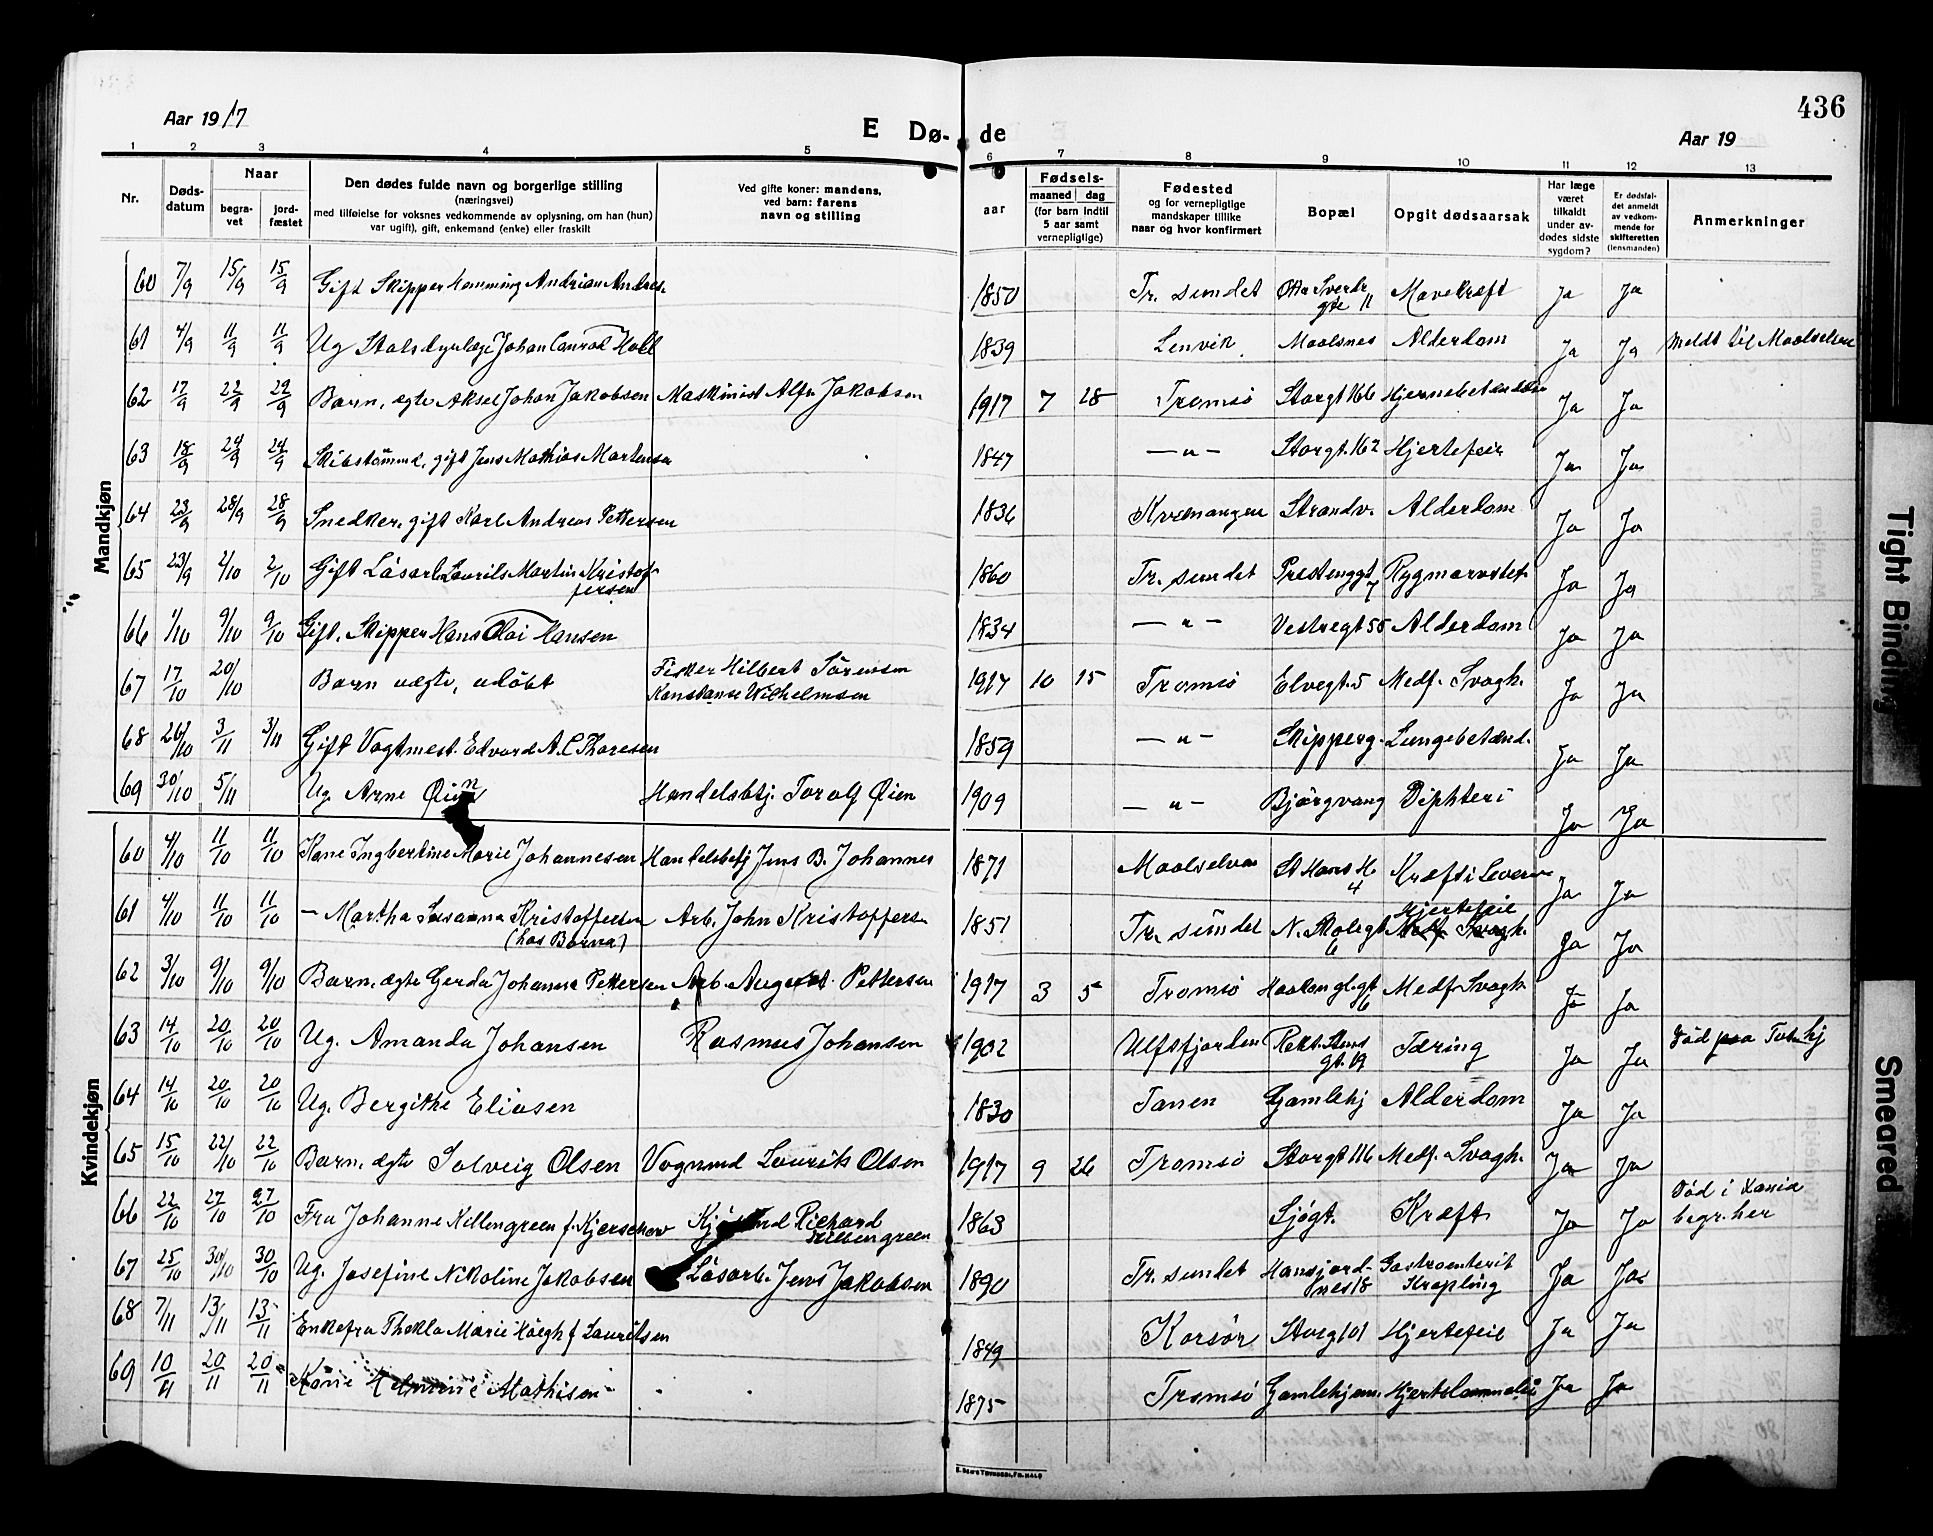 436
Aar 1917
E Dø- de
Aar 19
1 2 3 4 5 6 7 8 9 10 11 12 13
Nr.
Døds-
datum
Naar
begra-
vet
jord-
fæstet
Den dødes fulde navn og borgerlige stilling
(næringsvei)
med tilføielse for voksnes vedkommende av oplysning, om han (hun)
var ugift), gift, enkemand (enke) eller fraskilt
Ved gifte koner: mandens,
ved barn: farens
navn og stilling
aar
Fødsels-
maaned dag
(for barn indtil
5 aar samt
vernepligtige)
Fødested
og for vernepligtige
mandskaper tillike
naar og hvor konfirmert
Bopæl
Opgit dødsaarsak
Har læge
været
tilkaldt
under av-
dødes sidste
sygdom?
Er dødsfal-
det anmeldt
av vedkom-
mende for
skifteretten
(lensmanden)
Anmerkninger
Mandkjøn
60 7/9 15/9 15/9 Gift Skipper Hemming Andrian Andres. 1850 Tr. sundet Otto Sverdr. gte 11 Mavekræft Ja Ja
61 4/9 11/9 11/9 Ug Statsdyrlæge Johan Conrad Holl 1839 Lenvik Maalsnes Alderdom Ja Ja Meldt til Maalselven
62 17/9 22/9 22/9 Barn, ægte Aksel Johan Jakobsen Maskinist Alfr Jakobsen 1917 7 28 Tromsø Storgt 166 Hjernebetændelse Ja Ja
63 18/9 24/9 24/9 Skibstømmd. gift Jens Mathias Martensen 1847 — " — Storgt. 162 Hjertefeil Ja Ja
64 23/9 28/9 28/9 Snedker, gift Karl Andreas Pettersen 1836 Kvænangen Strandv. Alderdom Ja Ja
65 23/9 2/10 2/10 Gift Løsarb. Laurits Martin Kristof-
fersen 1860 Tr. sundet Prestenggt 7 Rygmarvstet. Ja Ja
66 1/10 9/10 9/10 Gift. Skipper Hans Olai Hansen 1834 — " — Vestregt 55 Alderdom Ja Ja
67 17/10 20/10 Barn uægte, udøbt Fisker Hilbert Sørensen
Konstanse Wilhelmsen 1917 10 15 Tromsø Elvegt. 5 Medf. Svagh. Ja Ja
68 26/10 3/11 3/11 Gift Vagtmest. Edvard A. C. Thoresen 1859 — " — Skipperg. Lungebetænd. Ja Ja
69 30/10 5/11 Ug. Arne Øien Handelsbtj. Torolf Øien 1909 — " — Bjørgvang Diphteri Ja Ja
Kvindekjøn
60 4/10 11/10 11/10 Kone Ingbertine Marie Johannesen Handelsbetj Jens B. Johannes 1871 Maalselven St Hans H 4 Kræft i Leveren Ja Ja
61 4/10 11/10 11/10 — Martha Susanna Kristoffersen
(hos Barna) Arb. John Kristoffers. 1851 Tr. sundet N. Skolegt 6 Hjertefeil Medf. Svagh. Ja Ja
62 3/10 9/10 9/10 Barn, ægte Gerda Johanne Pettersen Arb. August Pettersen 1917 3 5 Tromsø gt 6 Medf. Svagh. Ja Ja
63 14/10 20/10 20/10 Ug. Amanda Johansen Rasmus Johansen 1902 Ulfsfjorden Rekt. Stens gt. 19 Tæring Ja Ja Død paa Tub. hj
64 14/10 20/10 20/10 Ug. Bergithe Eliasen 1830 Tanen Gamlehj Alderdom Ja Ja
65 15/10 22/10 22/10 Barn, ægte Solveig Olsen Vognmd Laurits Olsen 1917 9 26 Tromsø Storgt 116 Medf. Svagh. Ja Ja
66 22/10 27/10 27/10 Fru Johanne Killengreen f. Kjerschow Kjøbmd Richard
Killengreen 1863 Sjøgt. Kræft Ja Ja Død i Xania
begr. her
67 25/10 30/10 30/10 Ug. Josefine Nikoline Jakobsen Løsarb. Jens Jakobsen 1890 Tr. sundet Hansjord-
nes 18 Gastroenterit
Ja Ja
68 7/11 13/11 13/11 Enkefru Thekla Marie Høegh f Lauritsen 1849 Korsør Storg 101 Hjertefeil Ja Ja
69 10/11 20/11 20/11 Kone Helmine Mathisen 1875 Tromsø Gamlehjem. Hjertelammelse Ja Ja
Tight Binding
Smeared